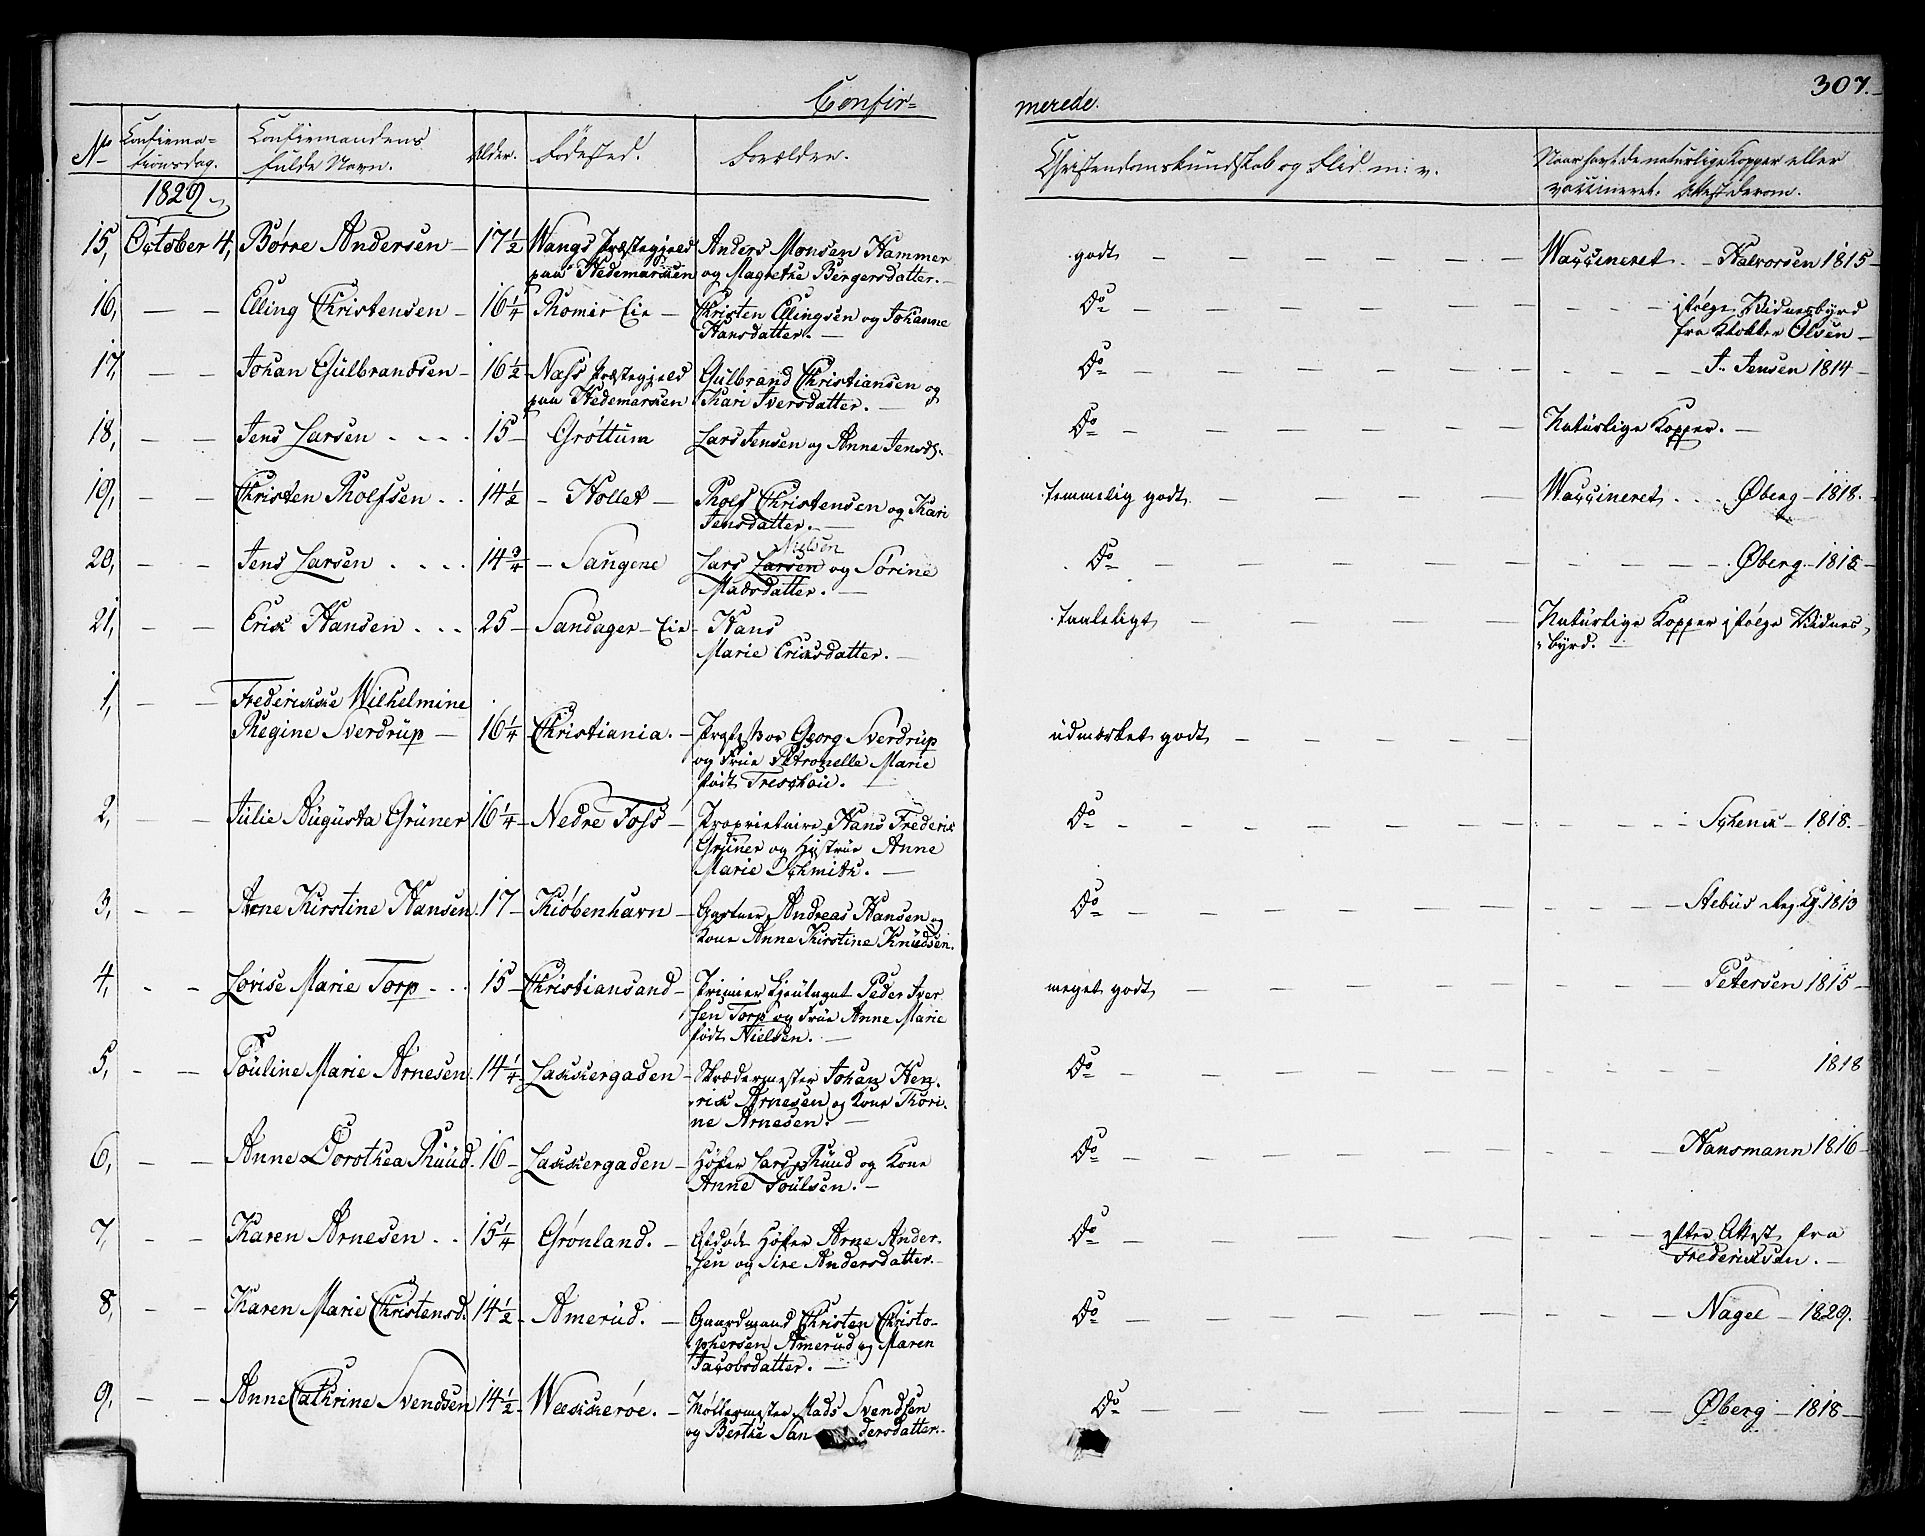 307.
Confir=
merede.
No
Confirma-
tionsdag.
Confirmandens
fulde Navn.
Alder.
Fødested.
Forældre.
Christendomskundskab og Flid m: v.
Naar havt de naturlige Kopper eller
vaccineret. Attest derom.
1829
15, October 4, Børre Andersen 17 1/2 Wangs Præstegjeld Anders Monsen Hammer godt Waccineret Halvorsen 1815
paa Hedemarken og Magrethe Bergersdatter.
16, Elling Christensen 16 1/4 Christen Ellingsen og Johanne Do ifølge Vidnesbyrd
Hansdatter. fra Klokker Olsen
17, Johan Gulbrandsen 16 1/2 Næss Præstegjeld Gulbrand Christiansen og Do J. Jensen 1814
paa Hedemarken Kari Iversdatter.
18, Jens Larsen 15 Grøttum Lars Jensen og Anne Jensd. Do Naturlige Kopper.
19, Christen Rolfsen 14 1/2 Hollet Rolf Christensen og Kari temmelig godt Waccineret Øberg 1818.
Jensdatter.
Nielsen
20, Jens Larsen 14 3/4 Saugene Lars Larsen og Sørine Do Øberg 1815
Madsdatter.
21, Erik Hansen 25 Sandager Eie Hans taaleligt Naturlige Kopper ifølge Vidnes
Marie Eriksdatter. byrd.
1, Frederikke Wilhelmine
Regine Sverdrup 16 1/4 Christiania. Professor Georg Sverdrup udmærket godt
og Frue Petronelle Marie
født Treschou.
2, Julie Augusta Grüner 16 1/4 Nedre Foss Proprietaire Hans Frederik Do Schenk 1818.
Grüner og Hustrue Anne
Marie Schmith.
3, Ane Kirstine Hansen 17 Kiøbenhavn Gartner Andreas Hansen og Do 1813
Kone Anne Kirstine Knudsen.
4, Lovise Marie Torp 15 Christiansand Premier Lieutnant Peder Iver meget godt Petersen 1815
sen Torp og Frue Anne Marie
født Nielsen.
5, Pouline Marie Arnesen 14 1/4 Lakkergaden Skrædermester Johan Hen- Do 1818
rik Arnesen og Kone Thori-
ne Arnesen.
6, Anne Dorothea Ruud 16 Lakkergaden Høker Lars Ruud og Kone Do Hansmann 1816
Anne Poulsen.
7, Karen Arnesen 15 1/4 Grønland. Afdøde Høker Arne Ander- Do efter Attest fra
sen og Sire Andersdatter. Frederiksen.
8, Karen Marie Christensd. 14 1/2 Amerud. Gaardmand Christen Christo- Do Nagel 1829.
phersen Amerud og Maren
Jacobsdatter.
9, Anne Cathrine Svendsen 14 1/2 Wækkerøe. Møllermester Mads Svendsen Do Øberg 1818
og Berthe San dersdatter.